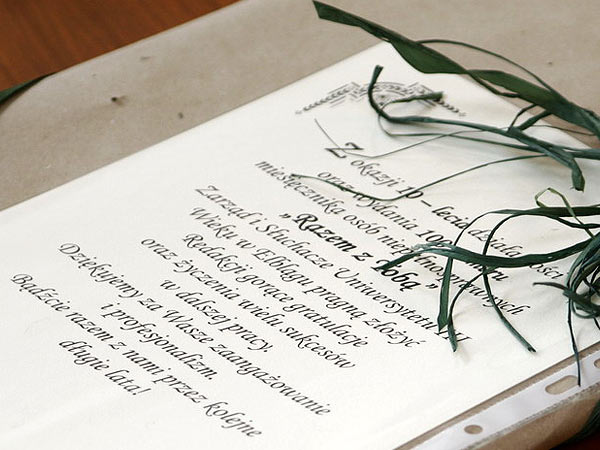 Z okazji 10 – lecia działalności
oraz wydania 100
miesięcznika osób niepełnosprawnych
„Razem z Tobą”
Zarząd i Słuchacze Uniwersytetu III
Wieku w Elblągu pragną złożyć
Redakcji gorące gratulacje
oraz życzenia wielu sukcesów
w dalszej pracy.
Dziękujemy za Wasze zaangażowanie
i profesjonalizm.
Bądźcie razem z nami przez kolejne
długie lata!